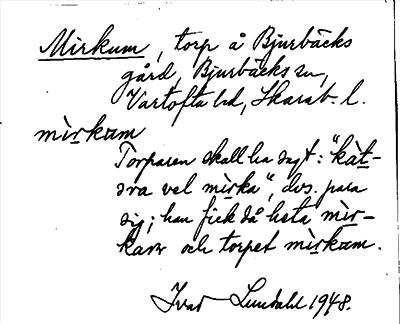 Mirkum, torp å Bjurbäcks
gård, Bjurbäcks sn,
Vartofta hd, Skarab. l.
mirkum
Torparen skall ha sagt: "kàt-
ora vel mirka", dvs. para
sig; han fick då heta mir-
karn och torpet mirkum.
Ivar Lundahl 1948.